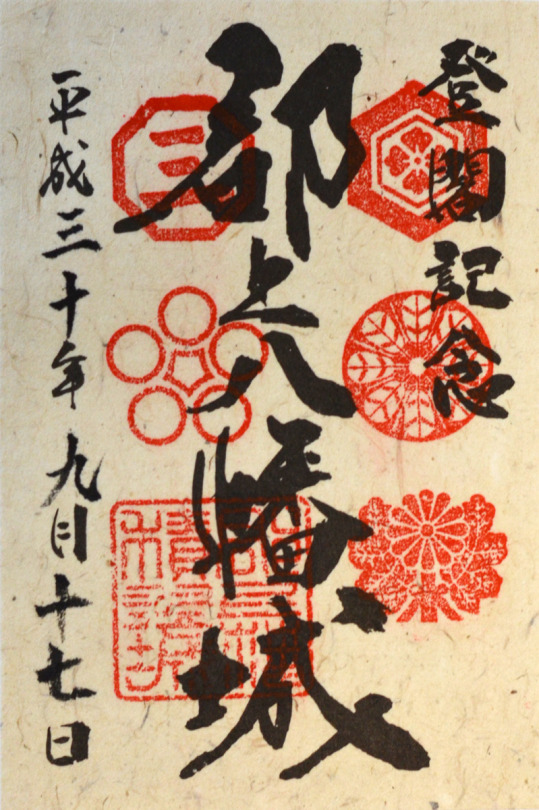 登閣記念
郡上八幡城
平成三十年九月十七日